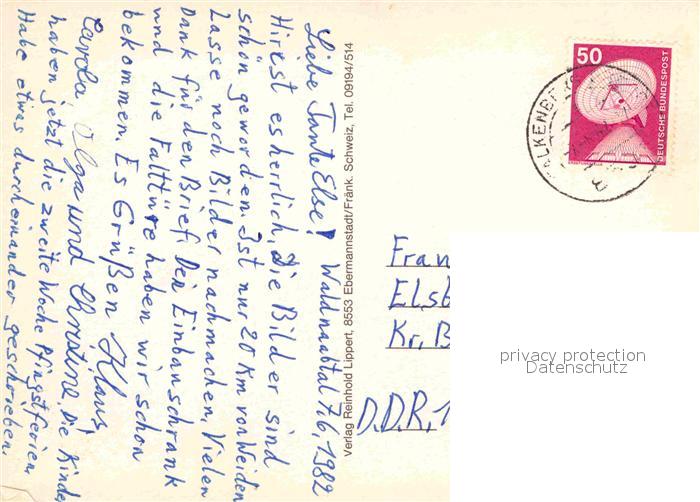 Waldnaabtal 7.6.1982
Liebe Tante Else!
Hir est es herrlich, die Bilder sind
schön geworden. Ist nur 20 Km von Weiden
Lasse noch Bilder nachmachen. Vielen
Dank für den Brief. Den Einbauschrank
und die Falttüre haben wir schon
bekommen. Es Grüßen Klaus,
Carola, Olga und Christine. Die Kinder
haben jetzt die zweite Woche Pfingstferien
Habe etwas durcheinander geschrieben.
Verlag Reinhold Lippert, 8553 Ebermannstadt/Fränk. Schweiz, Tel. 09194/514
50
DEUTSCHE BUNDESPOST
Fran
Elsb
Kr. B
D.D.R. 1
privacy protection
Datenschutz